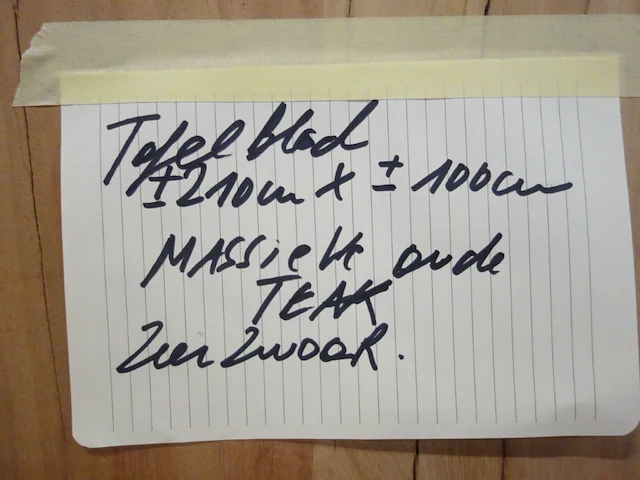 Tafelblad
±210cm X ±100cm
MASSieVe oude
TEAK
Zeer ZWAAR.